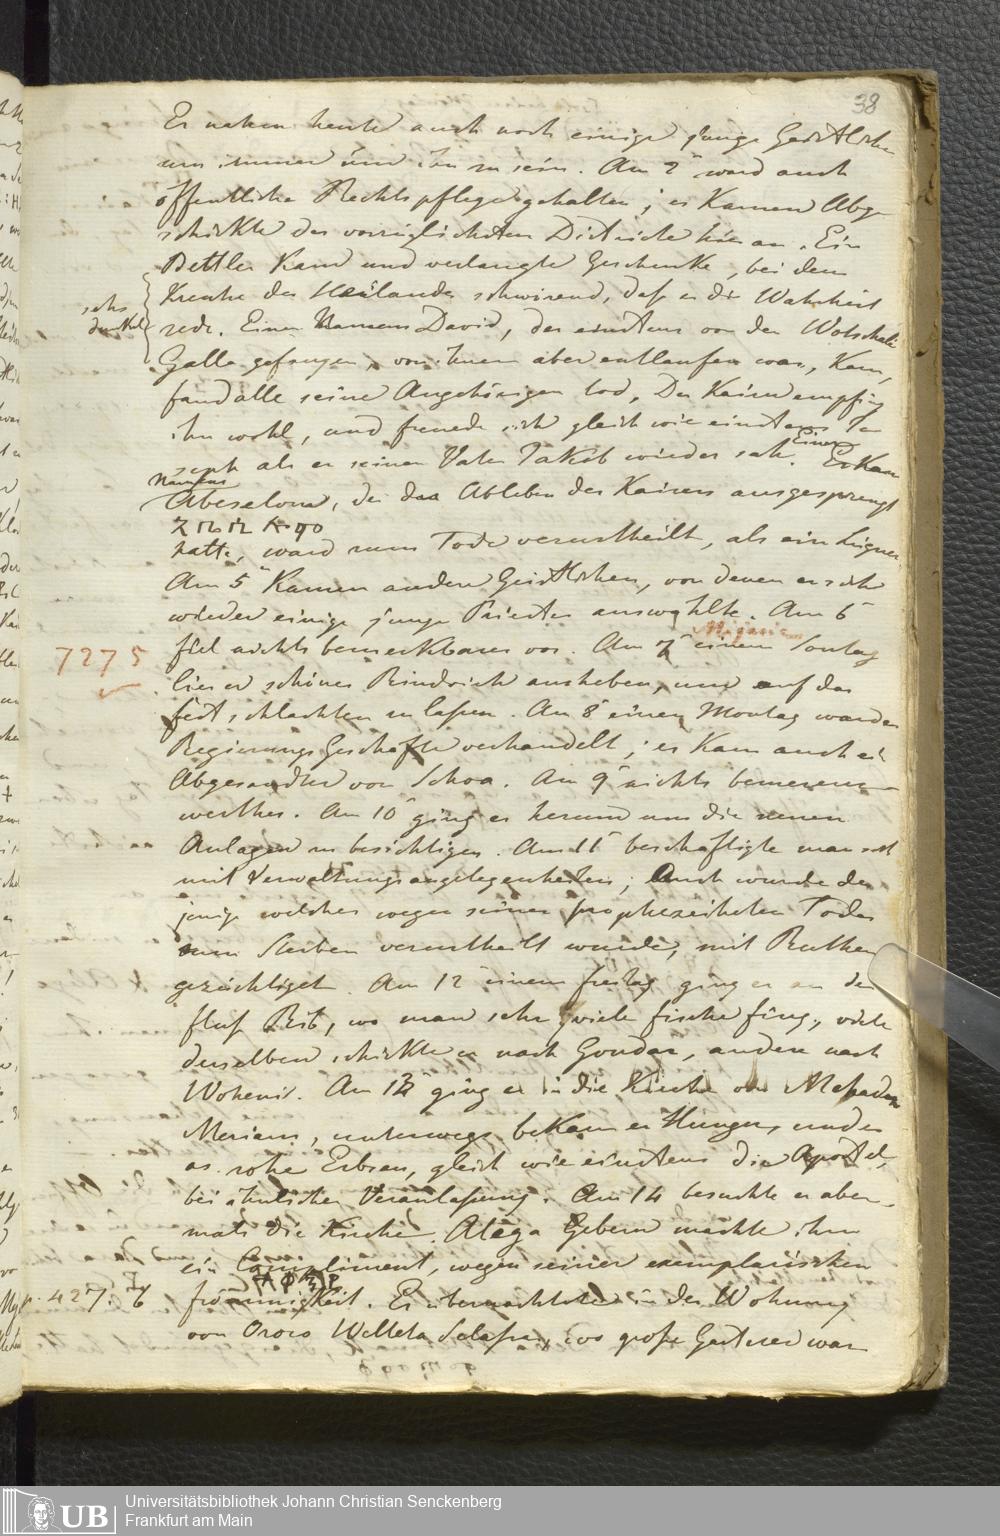 38
Er nahm heute auch noch einige junge Geistliche
um immer um ihn zu sein. Am 2ⁿ ward auch
öffentliche Rechtspflege gehalten; es kamen Abge-
schickte der vorzüglichsten Districte hier an. Ein
Bettler kam und verlangte Geschenke, bei dem
sehr
dunkel
Kreuze des Heilandes schwörend, daß er die Wahrheit
rede. Einer Namens David, der einstens von den Wotschale
Galla gefangen, von ihnen aber entlaufen war, kam,
fand alle seine Angehörigen tod, Der Kaiser empfing
ihn wohl, und freude sich gleich wie einstens Jo
seph als er seinen Vater Jakob wieder sah. Einer Er kam
Namens
Abeselom, der das Ableben des Kaisers ausgesprengt
hatte, ward zum Tode verurtheilt, als ein Lügner
Am 5ⁿ kamen andere Geistlichen, von denen er sich
wieder einige junge Priester auswählte. Am 6ⁿ
7275
fiel nichts bemerkbares vor. Am 7ⁿ einem Sontag
lies er schönes Rindvieh ausheben, um auf das
fest schlachten zu laßen. Am 8ⁿ einen Montag wurden
Regierungs Geschäfte verhandelt; es kam auch ein
Abgesandter von Schoa. Am 9ⁿ nichts bemerkens
werthes. Am 10ⁿ ging er herum um die neuen
Anlagen zu besichtigen. Am 11ⁿ beschäftigte man sich
mit Verwaltungsangelegenheiten; Auch wurde der
jenige welcher wegen seines prophezeiheten Todes
zum Sterben verurtheilt wurde, mit Ruthen
gezüchtiget. Am 12ⁿ einem freitag ging er an den
fluß Reb, wo man sehr viele fische fing, viele
derselben schickte er nach Gondar, andere nach
Wohenis. Am 13ⁿ ging er in die Kirche von
Meriam, unterwegs bekam er Hunger, und er
as rohe Erbsen, gleich wie einstens die Apostel,
bei ähnlicher Veranlaßung. Am 14 besuchte er aber-
mals die Kirche. Alega Gebern machte ihm
ein Compliment, wegen seiner exemplarischen
p. 427. b
frömmigkeit. Er übernachtete in der Wohnung
von Oros Welleta Selasse, wo große Gasterei war
Universitätsbibliothek Johann Christian Senckenberg
Frankfurt am Main
UB